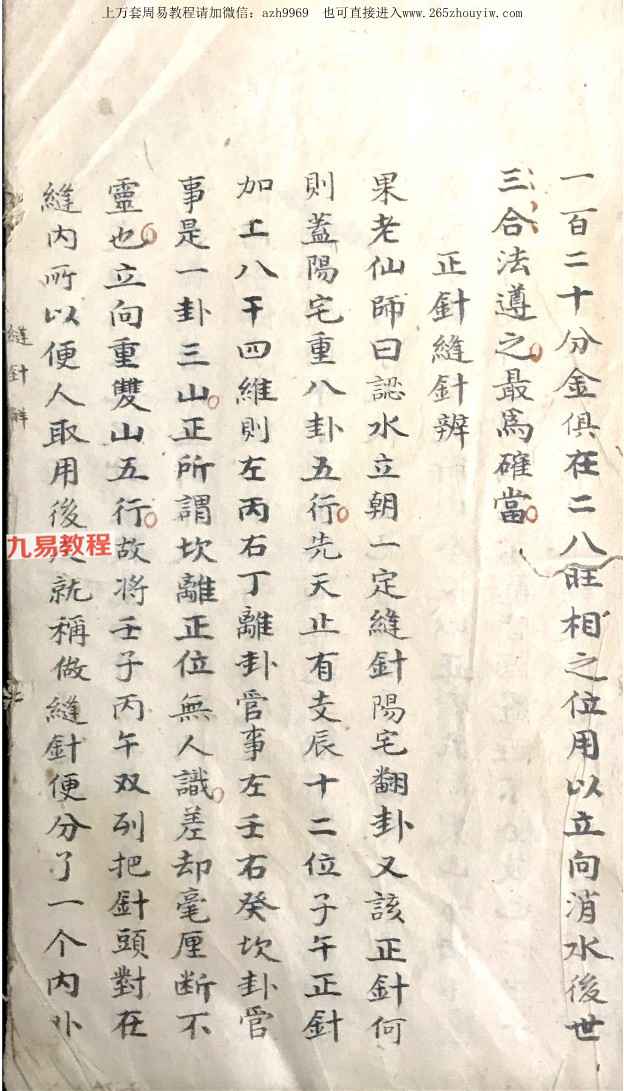 上万套周易教程请加微信：azh9969　也可直接进入www.265zhouyiw.com
一百二十分金俱在二八旺相之位用以立向消水後世
三合法遵之最為確當
正針縫針辨
果老仙師曰認水立朝一定縫針陽宅翻卦又該正針何
則蓋陽宅重八卦五行先天止有支辰十二位子午正針
加工八干四維則左丙右丁離卦管事左壬右癸坎卦管
事是一卦三山正所謂坎離正位無人識差却毫厘断不
靈也立向重雙山五行故将壬子丙午双列把針頭對在
縫内所以便人取用後就稱做縫針便分了一个内外
縫針辨
九易教程